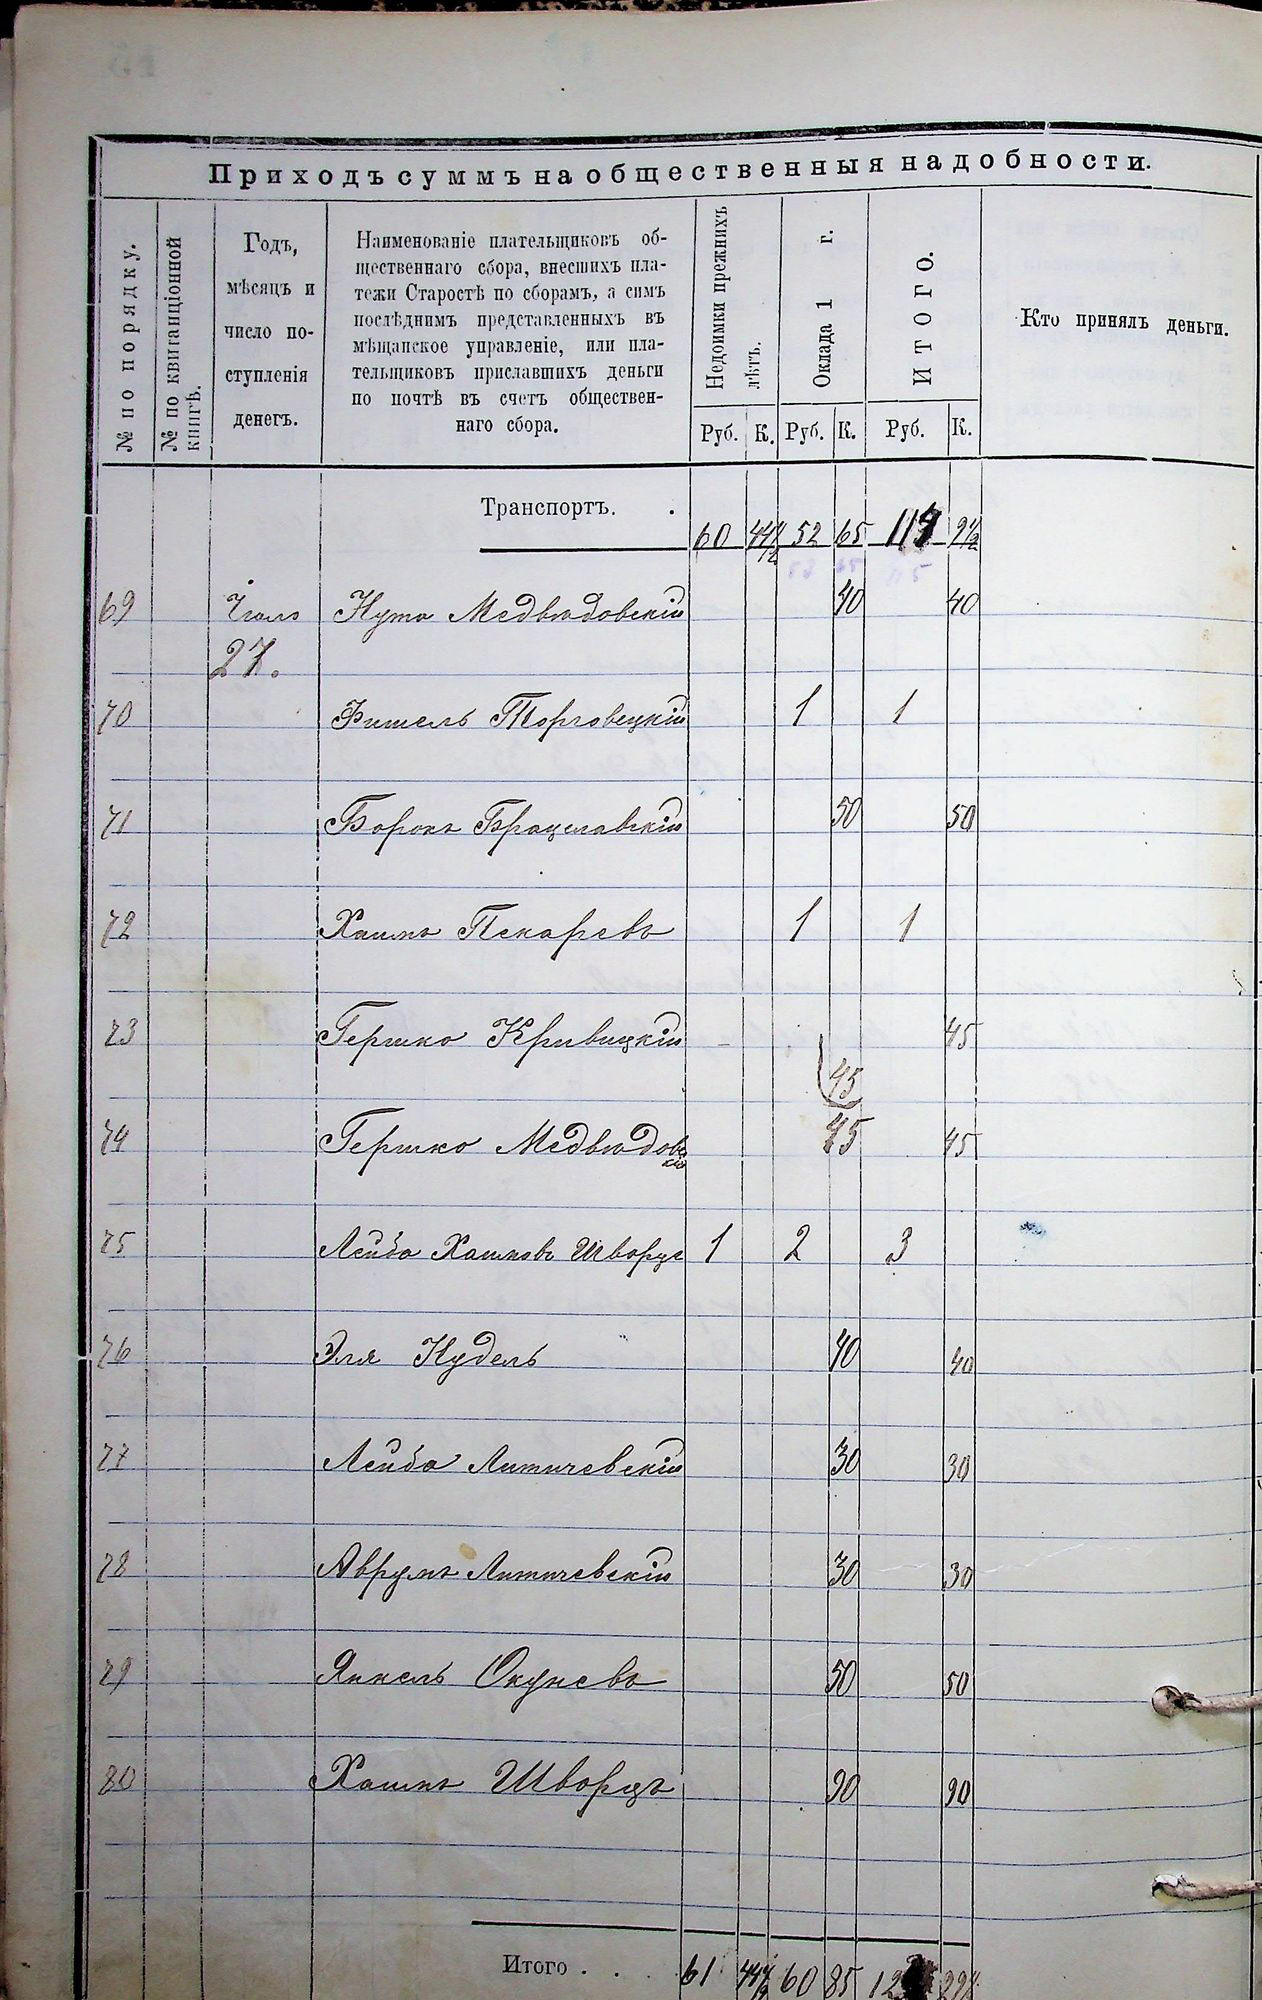 Приходъ суммъ на общественныя надобности.
№ по порядку.
№ по квитанціонной
книгѣ.
Годъ,
мѣсяцъ и
число по-
ступленія
денегъ.
Наименованіе плательщиковъ об-
щественнаго сбора, внесшихъ пла-
тежи Старостѣ по сборамъ, а симъ
послѣднимъ представленныхъ въ
мѣщанское управленіе, или пла-
тельщиковъ приславшихъ деньги
по почтѣ въ счетъ обществен-
наго сбора.
Недоимки прежнихъ
лѣтъ.
Оклада 1 г.
ИТОГО.
Кто принялъ деньги.
Руб. К. Руб. К. Руб. К.
Транспортъ. .
60 44 1/2 52 65
69 Нута Медвѣдовскій 40 40
27.
70 Фишель Торговецкій 1 1
71 Борохъ Брацлавскій 50 50
72 Хаимъ Пекаревъ 1 1
73 Гершко Кривицкій 45 45
74 Гершко Медвѣдов 45 45
скій
75 Лейба Хаимовъ Шворце 1 2 3
76 Эля Кудель 40 40
77 Лейба Литичевскій 30 30
78 Аврумъ Литичевскій 30 30
79 Янкель Окуневъ 50 50
80 Хаимъ Шворцъ 90 90
Итого . . . 61 44 1/2 60 85